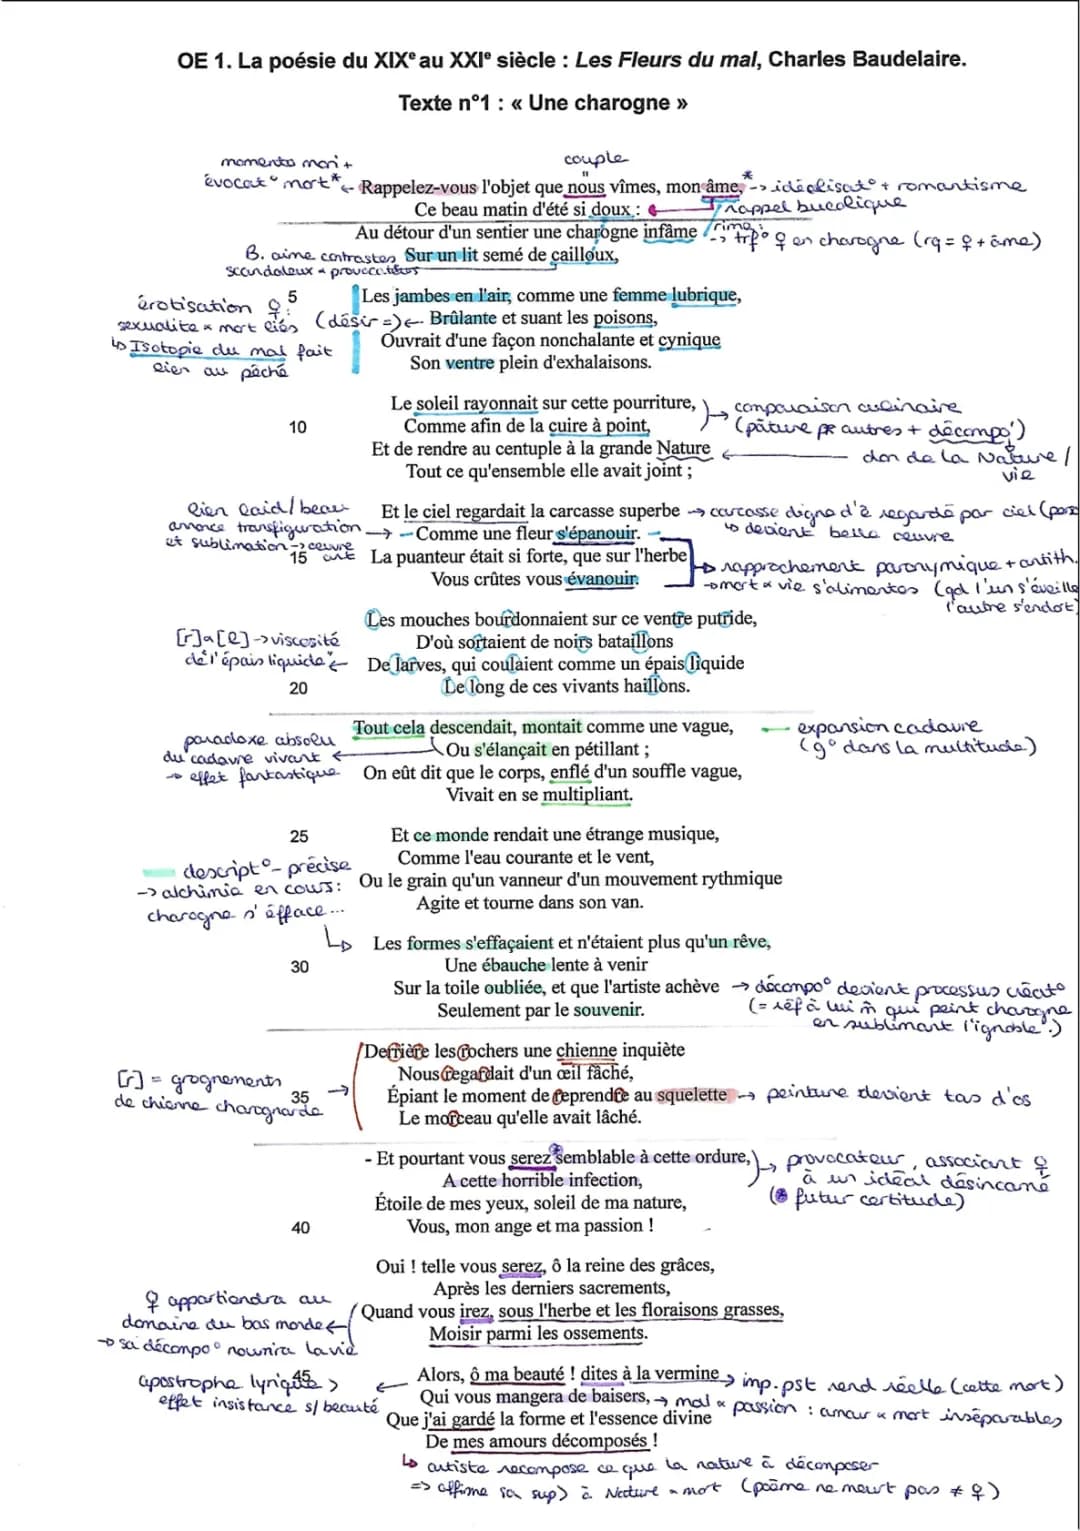 OE 1. La poésie du XIXe au XXIe siècle : Les Fleurs du mal, Charles Baudelaire.
Texte n°1 : « Une charogne »
momento mori +
évocat° mort*
couple
"
Rappelez-vous l'objet que nous vîmes, mon âme,* -> idéalisat° + romantisme
Ce beau matin d'été si doux : rappel bucolique
Au détour d'un sentier une charogne infâme rime : -> trf° ♀ en charogne (rq = ♀ + âme)
B. aime contrastes
scandaleux & provocateurs
Sur un lit semé de cailloux,
5
Les jambes en l'air, comme une femme lubrique,
Brûlante et suant les poisons,
Ouvrait d'une façon nonchalante et cynique
Son ventre plein d'exhalaisons.
érotisation ♀ :
sexualité & mort liés (désir =)
↳ Isotopie du mal fait
lien au péché
Le soleil rayonnait sur cette pourriture,
10
Comme afin de la cuire à point,
Et de rendre au centuple à la grande Nature
Tout ce qu'ensemble elle avait joint ;
comparaison culinaire
(pâture pr autres + décompo°)
don de la Nature /
vie
lien laid / beau
annonce transfiguration
et sublimation -> œuvre
art
Et le ciel regardait la carcasse superbe → carcasse digne d'ê regardé par ciel
Comme une fleur s'épanouir. ↳ devient belle œuvre
15
La puanteur était si forte, que sur l'herbe
Vous crûtes vous évanouir.
rapprochement paronymique + antith.
→ mort & vie s'alimentes (qd l'un s'éveille
l'autre s'endort)
Les mouches bourdonnaient sur ce ventre putride,
D'où sortaient de noirs bataillons
De larves, qui coulaient comme un épais liquide
20
Le long de ces vivants haillons.
[r] & [l] -> viscosité
de l'épais liquide
Tout cela descendait, montait comme une vague,
Ou s'élançait en pétillant ;
On eût dit que le corps, enflé d'un souffle vague,
Vivait en se multipliant.
paradoxe absolu
du cadavre vivant
→ effet fantastique
expansion cadavre
(g° dans la multitude)
25
Et ce monde rendait une étrange musique,
Comme l'eau courante et le vent,
Ou le grain qu'un vanneur d'un mouvement rythmique
Agite et tourne dans son van.
descript° - précise
-> alchimie en cours :
charogne s'éfface...
Les formes s'effaçaient et n'étaient plus qu'un rêve,
30
Une ébauche lente à venir
Sur la toile oubliée, et que l'artiste achève
Seulement par le souvenir.
→ décompo° devient processus créat°
(= réf à lui m̂ qui peint charogne
en sublimant l'ignoble.)
Derrière les rochers une chienne inquiète
Nous regardait d'un œil fâché,
35
Épiant le moment de reprendre au squelette → peinture devient tas d'os
Le morceau qu'elle avait lâché.
[r] = grognements
de chienne charognarde
- Et pourtant vous serez semblable à cette ordure,
A cette horrible infection,
Étoile de mes yeux, soleil de ma nature,
40
Vous, mon ange et ma passion !
provocateur, associant ♀
à un idéal désincarné
(* futur certitude)
Oui ! telle vous serez, ô la reine des grâces,
Après les derniers sacrements,
Quand vous irez, sous l'herbe et les floraisons grasses,
Moisir parmi les ossements.
♀ appartiendra au
domaine du bas monde
→ sa décompo° nourrira la vie
45
Alors, ô ma beauté ! dites à la vermine
Qui vous mangera de baisers,
Que j'ai gardé la forme et l'essence divine
De mes amours décomposés !
apostrophe lyrique >
effet insistance s/ beauté
imp. pst rend réelle (cette mort)
→ mal & passion : amour & mort inséparables
↳ artiste recompose ce que la nature à décomposer
=> affirme sa sup) à Nature & mort (poème ne meurt pas ≠ ♀)